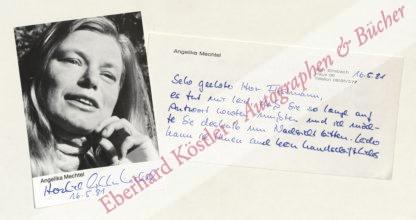 Angelika Mechtel
16.5.81
Angelika Mechtel
16.5.81
Sehr geehrter Herr
es tut mir leid, daß Sie so lange auf
Antwort warten mußten und ich möch-
te Sie deshalb um Nachsicht bitten. Leider
kann ich Ihnen auch kein handschriftliches
Eberhard Köstler - Autographen & Bücher